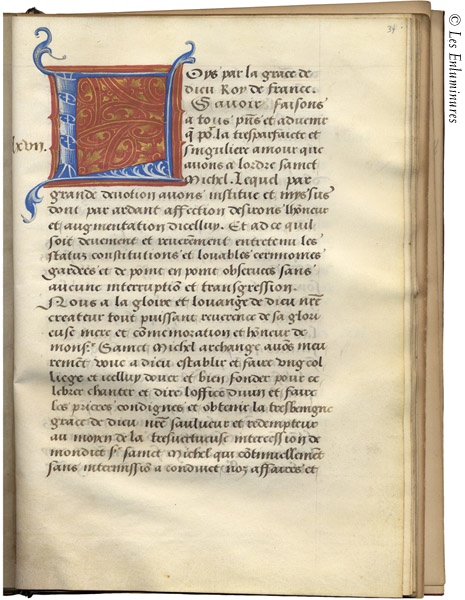 34
Loys par la grace de
dieu Roy de france.
Savoir faisons
a tous pñts et advenir
q̃ po.r la tresparfaicte et
singuliere amour que
avons a lordre sainct
lxvii.
Michel. Lequel par
grande devotion avons institue et mys sus
dont par ardant affection desirons lhõneur
et augmentation dicelluy. Et ad ce quil
soit deuement et reverẽment entretenu les
status constitutions et louables cerimonies
gardees et de point en point observees sans
aucune interruptiõ et transgression.
Nous a la gloire et louange de dieu nr̃e
createur tout puissant reverence de sa glori
euse mere et cõmemoration et hõneur de
mons.r Sainct Michel archange avõs meu
rement voue a dieu establir et faire ung col
liege et icelluy douer et bien fonder pour ce
lebrer chanter et dire loffice divin et faire
les prieres condignes et obtenir la tresbenigne
grace de dieu nr̃e saulueur et redempteur
au moyen de la tresvertueuse intercession de
mondict s.r sainct Michel qui cõtinuellemẽt
sans intermissiõ a conduict noz affaires et
© Les Enluminures